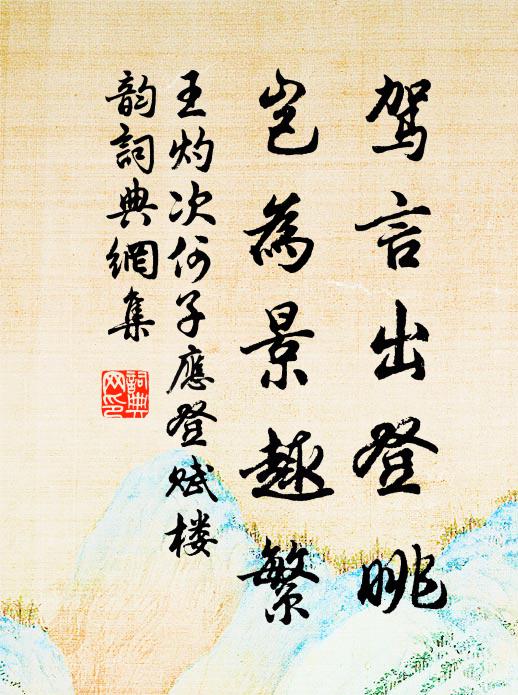 驾言出登眺
岂為景趣繁
王灼次何子應登赋楼
韵詞典網集
詞典
网印